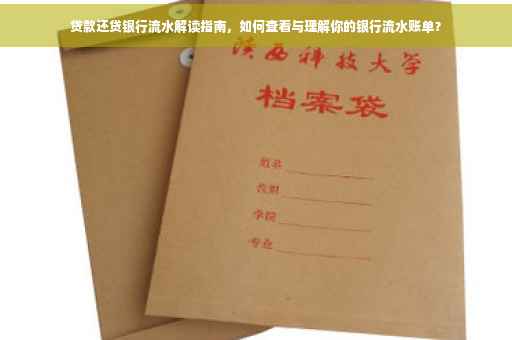 贷款还贷银行流水解读指南，如何查看与理解你的银行流水账单？
陕西科技大学
档案袋
姓名
学院
专业